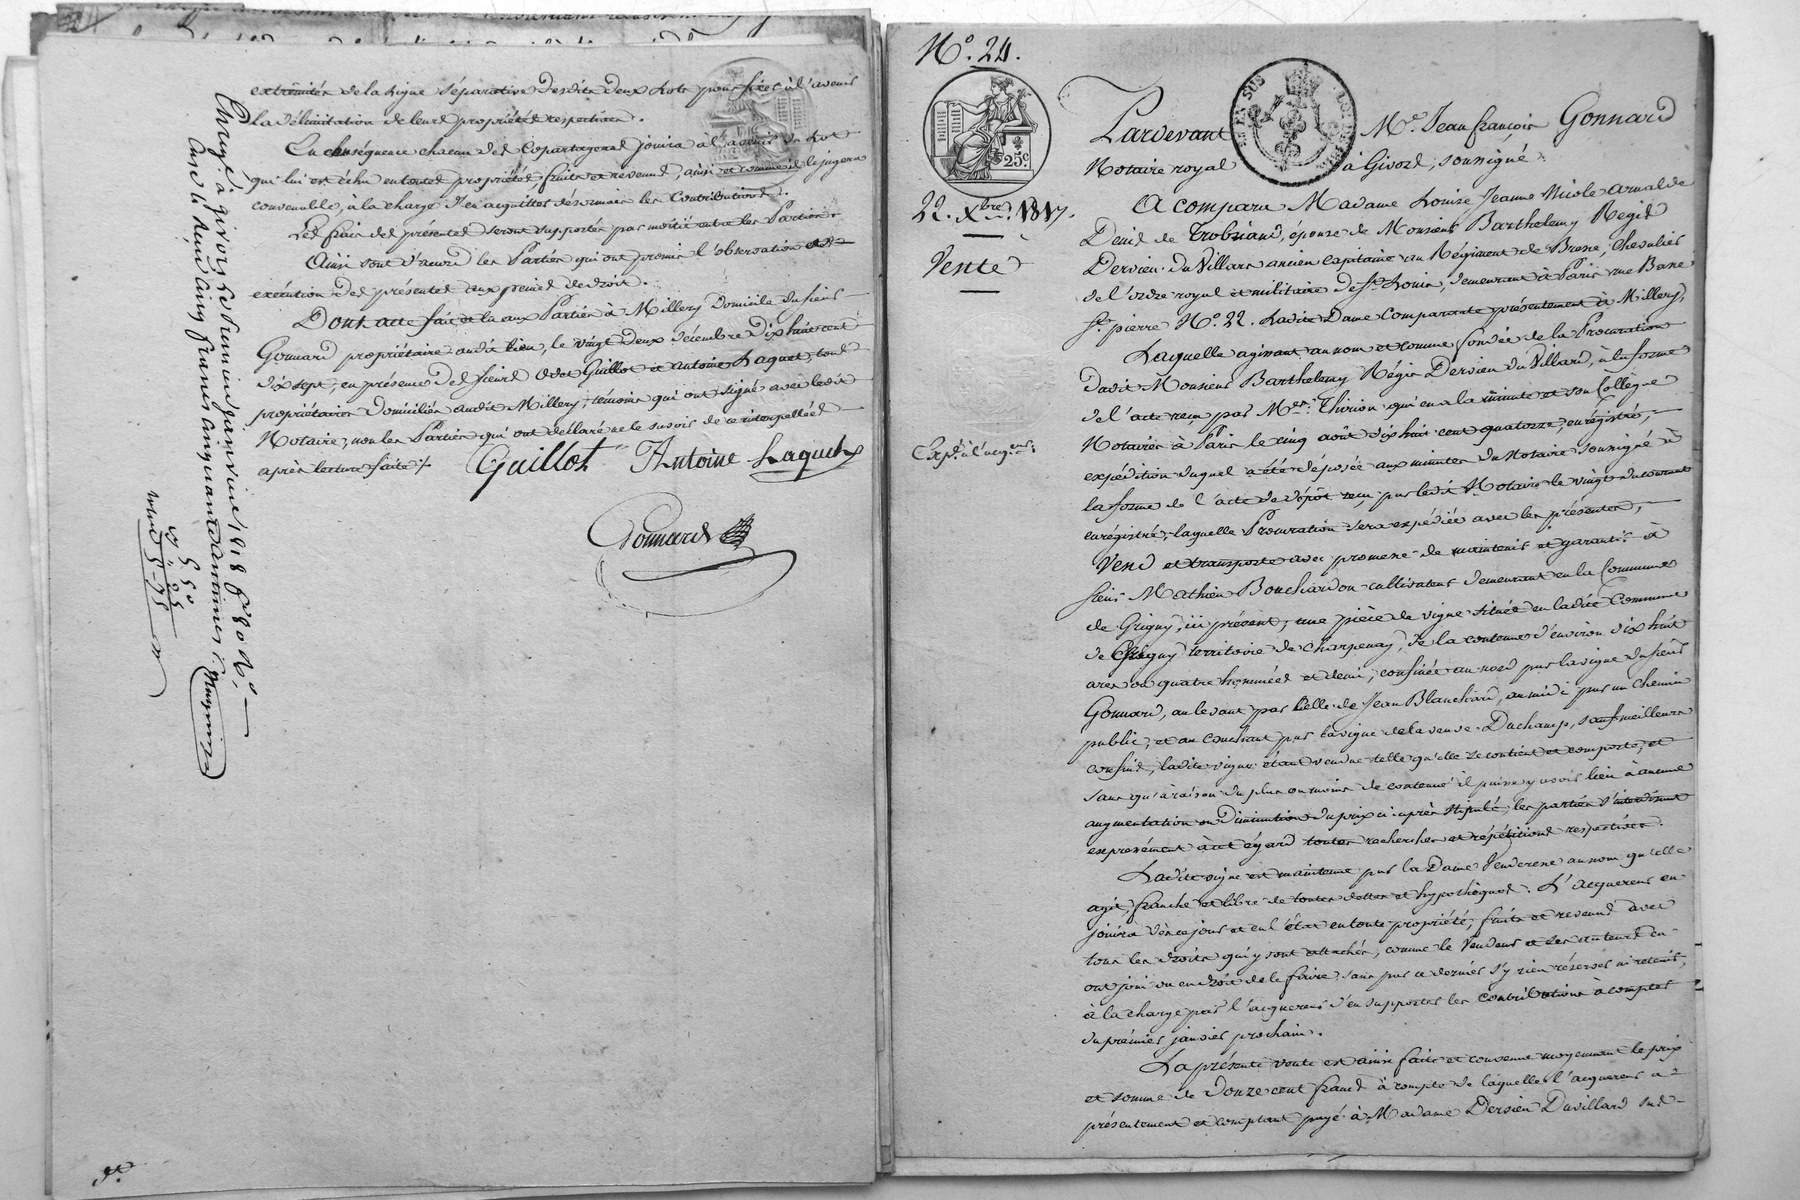 extrémités de la ligne séparative desdits deux Lots pour fixer à l'avenir
la délimitation de leurs propriétés respectives.
En conséquence chacun des Copartageans jouira à l'avenir du Lot
qui lui est échu en toutes propriétés, fruits et revenus, ainsi et comme il le jugera
convenable, à la charge d'en acquitter désormais les Contributions.
Les frais des présentes seront supportés par moitié entre les Parties.
Ainsi sont d'accord les Parties qui ont promis l'observation et
exécution des présentes aux peines de droit.
Dont acte fait et lu aux Parties à Millery Domicile du sieur
Gonnard propriétaire audit lieu, le vingt deux décembre dix huit cent
dix sept, en présence des sieurs Guillot et Antoine Laquet, tous
propriétaires domiciliés audit Millery, témoins qui ont signé avec ledit
Notaire, non les Parties qui ont déclaré ne le savoir de ce interpellées
après lecture faite /.
Guillot Antoine Laquet
Gonnard
Enregé. à givors le huit janvier 1818 f° 80 v°.
Reçu cinq francs cinquante centimes
5. 50
" 55
N°. 24.
25c
22. Xbre. 1817.
Vente
Expd. à l'acqur.
Pardevant Me. Jean françois Gonnard
Notaire royal à Givors, soussigné.
A comparu Madame Louise Jeanne Nicole arnalde
Denis de Trobriand, épouse de Monsieur Barthelemy Régis
Dervieu du Villars ancien capitaine au Régiment de Bresse, Chevalier
de l'ordre royal et militaire de St. Louis, demeurant à Paris rue Basse
St. pierre N°. 22. Ladite Dame Comparante présentement à Millery,
Laquelle agissant au nom et comme fondée de la Procuration
dudit Monsieur Barthelemy Régis Dervieu du Villard, à la forme
de l'acte reçu par Me. Thirion qui en a la minute et son Collègue
Notaires à Paris le cinq août dix huit cent quatorze, enrégistré,
expédition duquel a été déposée aux minutes du Notaire soussigné à
la forme de l'acte de dépôt reçu par ledit Notaire le vingt du courant
enrégistré, laquelle Procuration sera expédiée avec les présentes,
Vend et transporte avec promesse de maintenir et garantir à
sieur Mathieu Bouchardon cultivateur demeurant en la Commune
de Grigny, ici présent, une pièce de vigne située en ladite Commune
de Grigny territoire de Charpenay, de la contenue d'environ dix huit
ares ou quatre hommées et demi, confinée au nord par la vigne du sieur
Gonnard, au levant par celle de Jean Blanchard, au midi par un chemin
public, et au couchant par la vigne de la veuve Duchamp, sauf meilleurs
confins, ladite vigne étant vendue telle qu'elle se contient et comporte, et
sans qu'à raison du plus ou moins de contenue il puisse y avoir lieu à aucune
augmentation ou diminution du prix ci-après stipulé, les parties s'interdisant
expressément à cet égard toutes recherches et répétitions respectives.
Ladite vigne est maintenue par la Dame Venderesse au nom qu'elle
agit, franche et libre de toutes dettes et hypothèques. L'acquereur en
jouira dès ce jour et en l'état en toute propriété, fruits et revenus avec
tous les droits qui y sont attachés, comme le Vendeur et ses auteurs en
ont joui ou eu droit de le faire sans par ce dernier s'y rien réserver ni retenir,
à la charge par l'acquereur d'en supporter les contributions à compter
du premier janvier prochain.
La présente vente est ainsi faite et convenue moyennant le prix
et somme de Douze cent francs à compte de laquelle l'acquereur a
présentement et comptant payé à Madame Dervieu Duvillard sus-